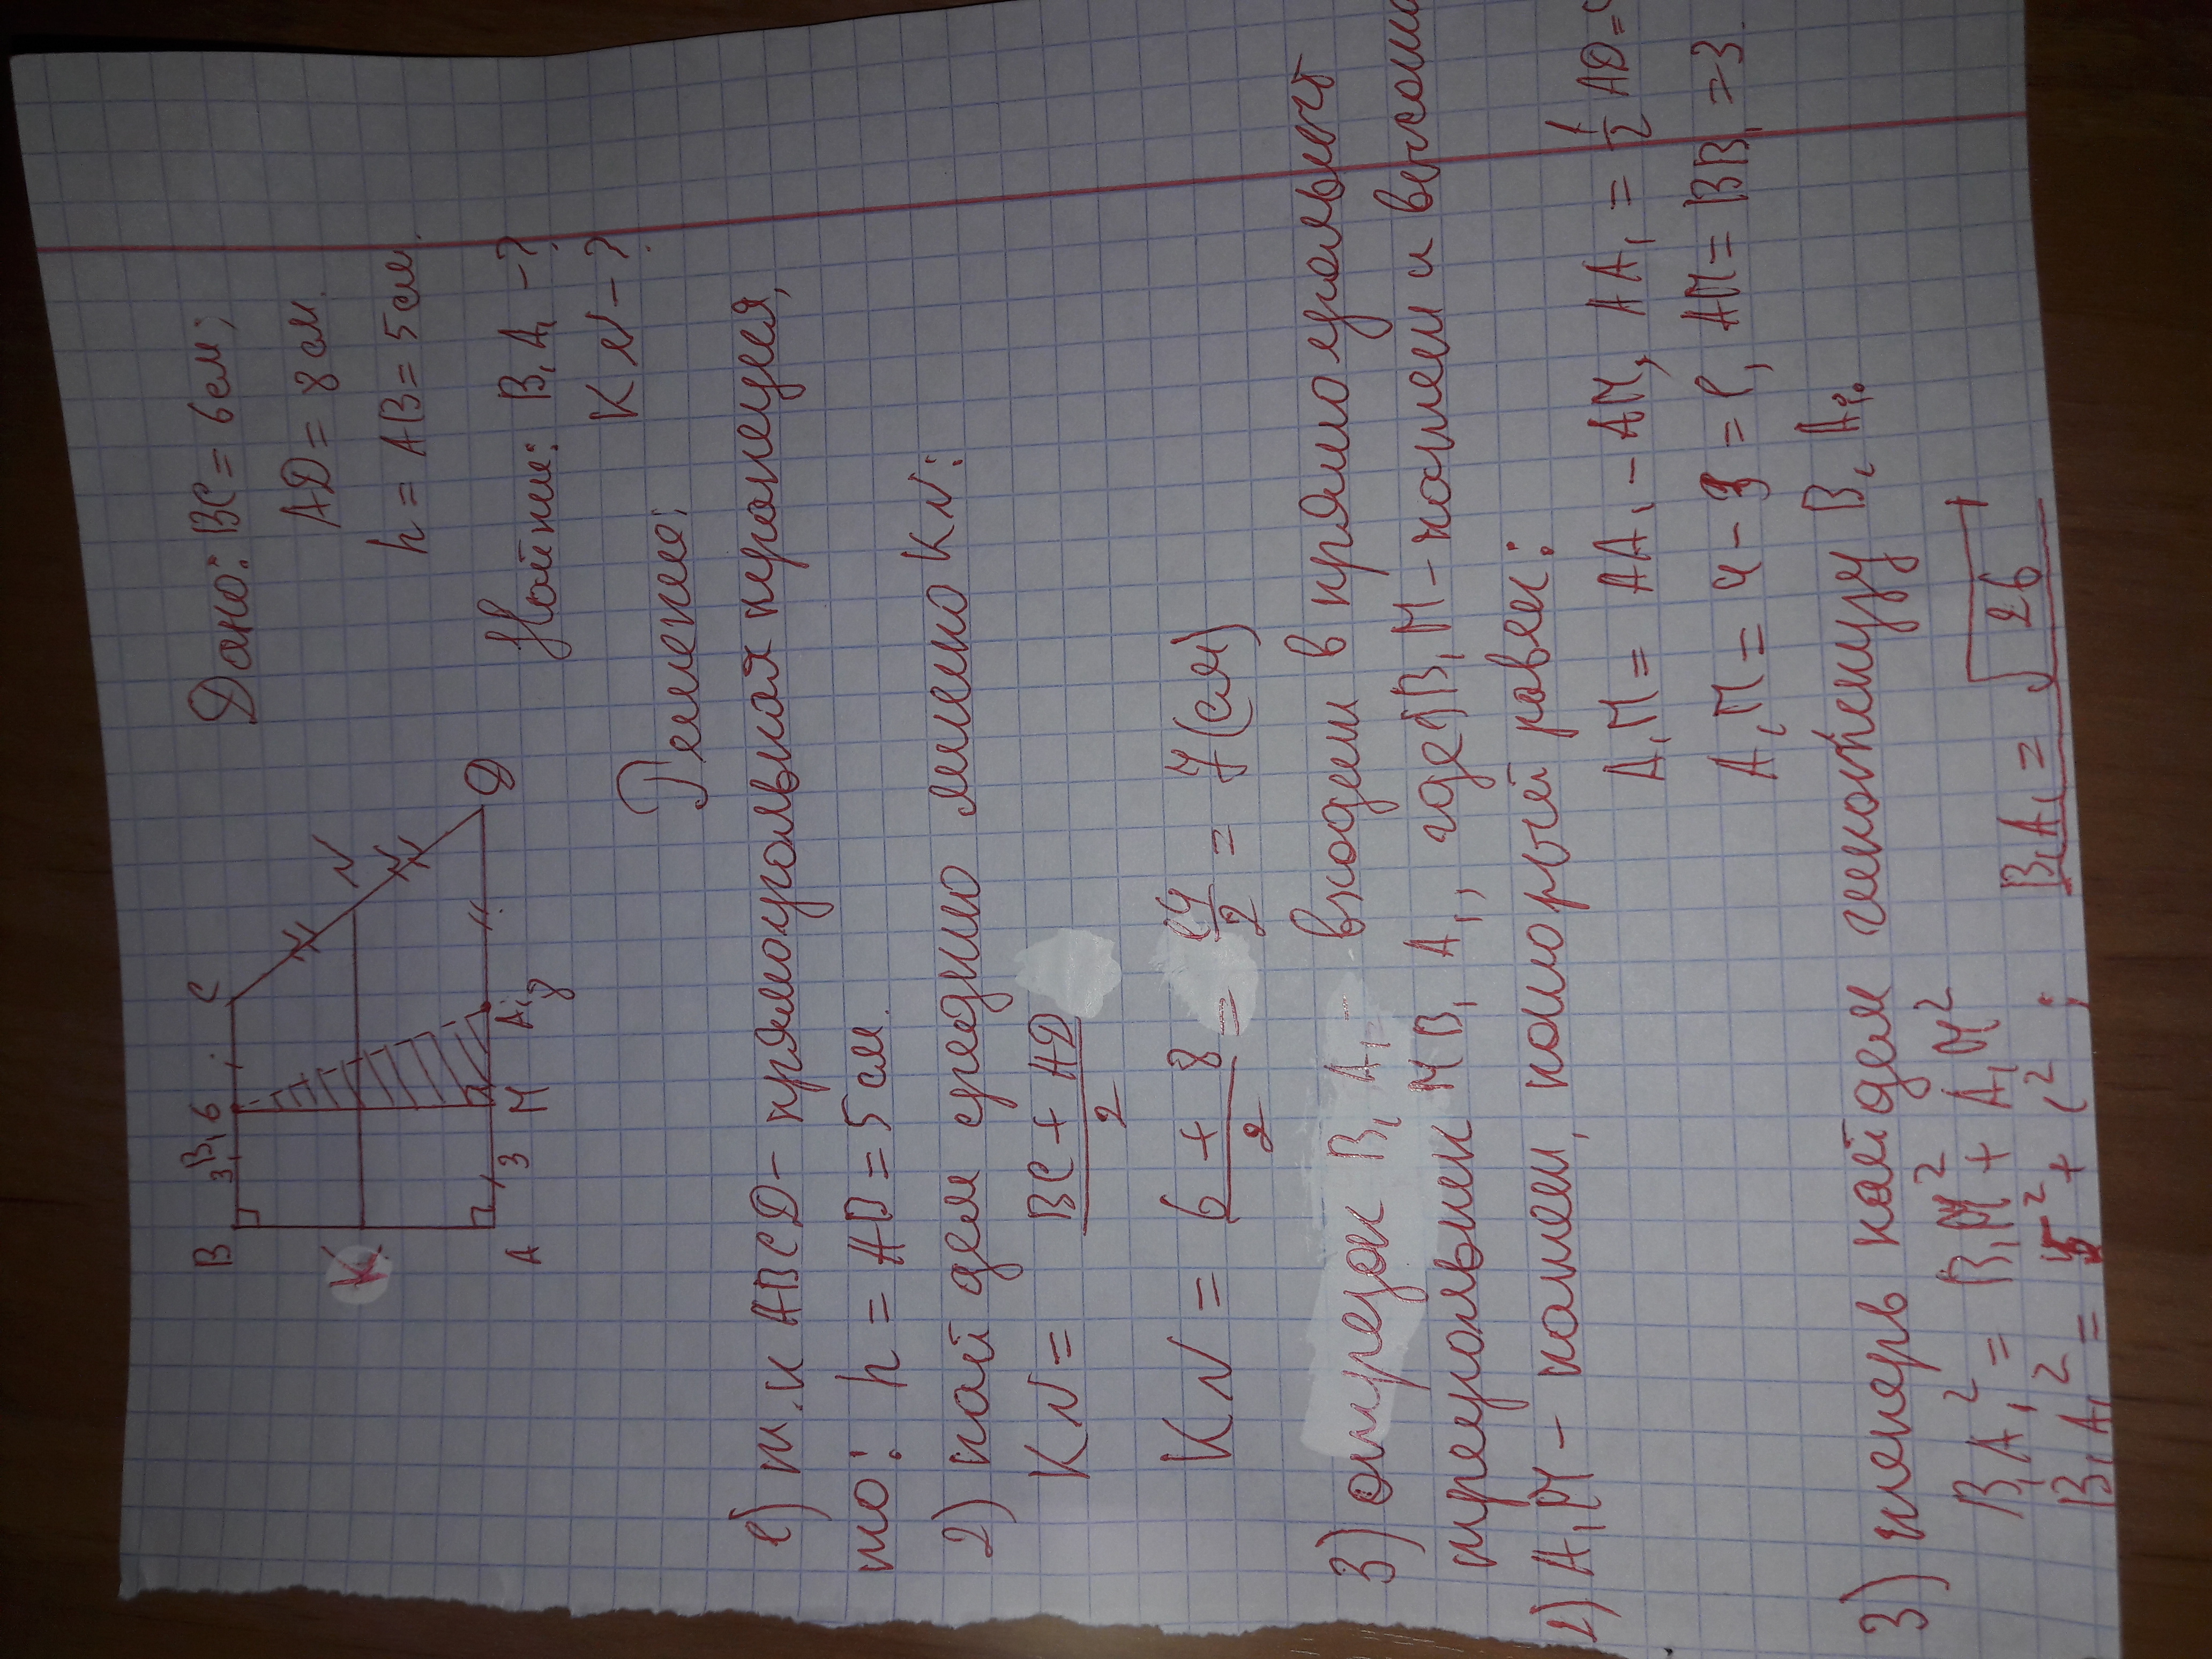 Дано: BC = 6 см;
AD = 8 см.
h = AB = 5 см.
Найти: B₁A₁ - ?
KN - ?
B 3 B₁ 6 C
K N
A 3 M A₁ 8 D
Решение:
1) т.к ABCD - прямоугольная трапеция,
то: h = AB = 5 см.
2) найдем среднию линию KN:
KN = (BC + AD)/2
KN = (6 + 8)/2 = 14/2 = 7 (см)
3) отрезок B₁A₁ - входит в прямоугольный
треугольник MB₁A₁, где B₁M - катет и высота
2) A₁M - катет, который равен:
A₁M = AA₁ - AM, AA₁ = 1/2 AD =
A₁M = 4 - 3 = 1, AM = BB₁ = 3.
3) теперь найдем гипотенузу B₁A₁.
B₁A₁² = B₁M² + A₁M²
B₁A₁² = 5² + 1²; B₁A₁ = √26